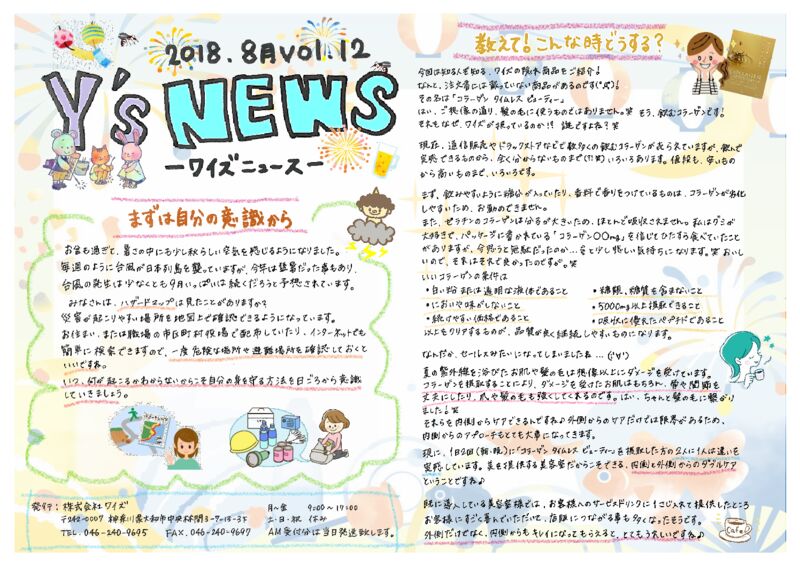 2018.8月vol.12
Y's NEWS
ーワイズニュースー
まずは自分の意識から
お盆も過ぎて、暑さの中にも少し秋らしい空気を感じるようになりました。
毎週のように台風が日本列島を襲っていますが、今年は猛暑だった事もあり、
台風の発生は少なくとも9月いっぱいは続くだろうと予想されています。
みなさんは、ハザードマップは見たことがありますか?
災害が起こりやすい場所を地図上で確認できるようになっています。
お住まい、または職場の市区町村役場で配布していたり、インターネットでも
簡単に検索できますので、一度危険な場所や避難場所を確認しておくと
いいですね。
いつ、何が起こるかわからないからこそ自分の身を守る方法を日ごろから意識
していきましょう。
発行:株式会社ワイズ
〒242-0007 神奈川県大和市中央林間3-7-13-3F
TEL.046-240-9695 FAX.046-240-9697
月〜金 9:00〜17:00
土・日・祝 休み
AM受付分は当日発送致します。
教えて!こんな時どうする?
今回は知る人ぞ知る、ワイズの隠れ商品をご紹介!
なんと、注文書には載っていない商品があるのです
その名は「コラーゲン タイムレス ビューティー」
はい、ご想像の通り、髪の毛に使うものではありません。笑 そう、飲むコラーゲンです。
それもなぜ、ワイズが扱っているのか!? 謎ですよね?笑
現在、通信販売やドラッグストアなどで数多くの飲むコラーゲンが売られていますが、飲んで
実感できるものから、全く分からないものまで(!?笑)いろいろあります。値段も、安いもの
から高いものまで、いろいろです。
まず、飲みやすいように糖分が入っていたり、香料で香りをつけているものは、コラーゲンが劣化
しやすいため、お勧めできません。
また、ゼラチンのコラーゲンは分子が大きいため、ほとんど吸収されません。私はグミが
大好きで、パッケージに書かれている「コラーゲン〇〇mg」を信じてひたすら食べていたこと
がありますが、今思うと無駄だったのか...
いいコラーゲンの条件は
・白い粉または透明な液体であること ・糖類、糖質を含まないこと
・においや味がしないこと ・5000mg以上摂取できること
・続けやすい価格であること ・吸収に優れたペプチドであること
以上をクリアするものが、品質が良く継続しやすいものになります。
なんだか、セールスみたいになってしまいましたね...
夏の紫外線を浴びたお肌や髪の毛は想像以上にダメージを受けています。
コラーゲンを摂取することにより、ダメージを受けたお肌はもちろん、骨や関節を
丈夫にしたり、爪や髪の毛も強くしてくれるのです。はい、ちゃんと髪の毛に繋がり
ました!笑
それらを内側からケアできるんですね♪外側からのケアだけでは限界があるため、
内側からのアプローチもとても大事になってきます。
現に、1日2回(朝・晩)に「コラーゲン タイムレス ビューティー」を摂取した方の2人に1人は違いを
実感しています。美を提供する美容室だからこそできる、内側と外側からのダブルケア
ということですね♪
既に導入している美容室様では、お客様へのサービスドリンクに1さじ入れて提供したところ
お客様にすごく喜んでいただいて、店販につながる事も多くなったそうです。
外側だけでなく、内側からもキレイになってもらえると、とてもうれしいですね♪
Cafe